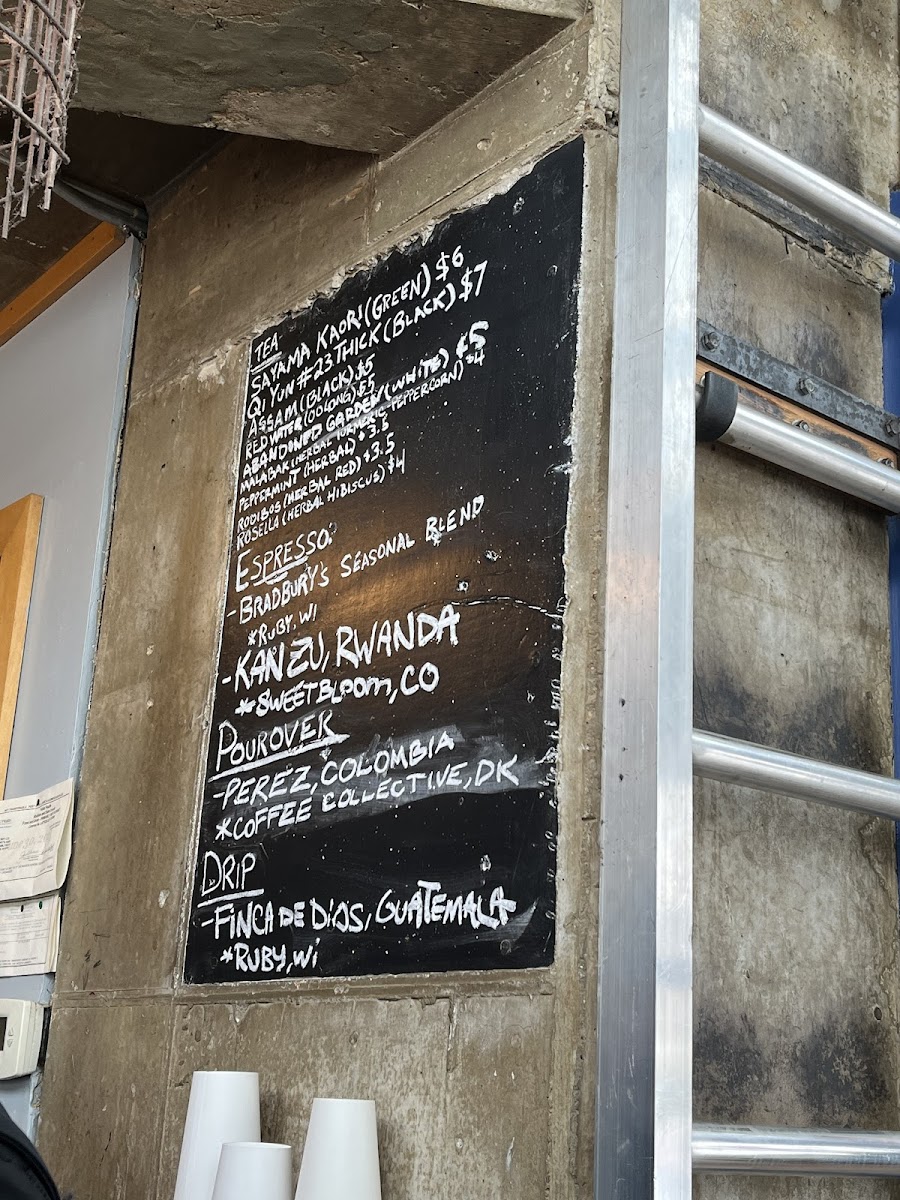 TEA
SAYAMA KAORI (GREEN) $6
QI YUN #23 THICK (BLACK) $7
ASSAM (BLACK) $5
RED WATER (OOLONG) $5
ABANDONED GARDEN (WHITE) $5
MALABAR (HERBAL TURMERIC PEPPERCORN) $4
PEPPERMINT (HERBAL) $3.5
ROOIBOS (HERBAL RED) $3.5
ROSELLA (HERBAL HIBISCUS) $4
ESPRESSO:
-BRADBURY'S SEASONAL BLEND
*RUBY, WI
-KANZU, RWANDA
*SWEETBLOOM, CO
POUROVER
-PEREZ, COLOMBIA
*COFFEE COLLECTIVE, DK
DRIP
-FINCA DE DIOS, GUATEMALA
*RUBY, WI